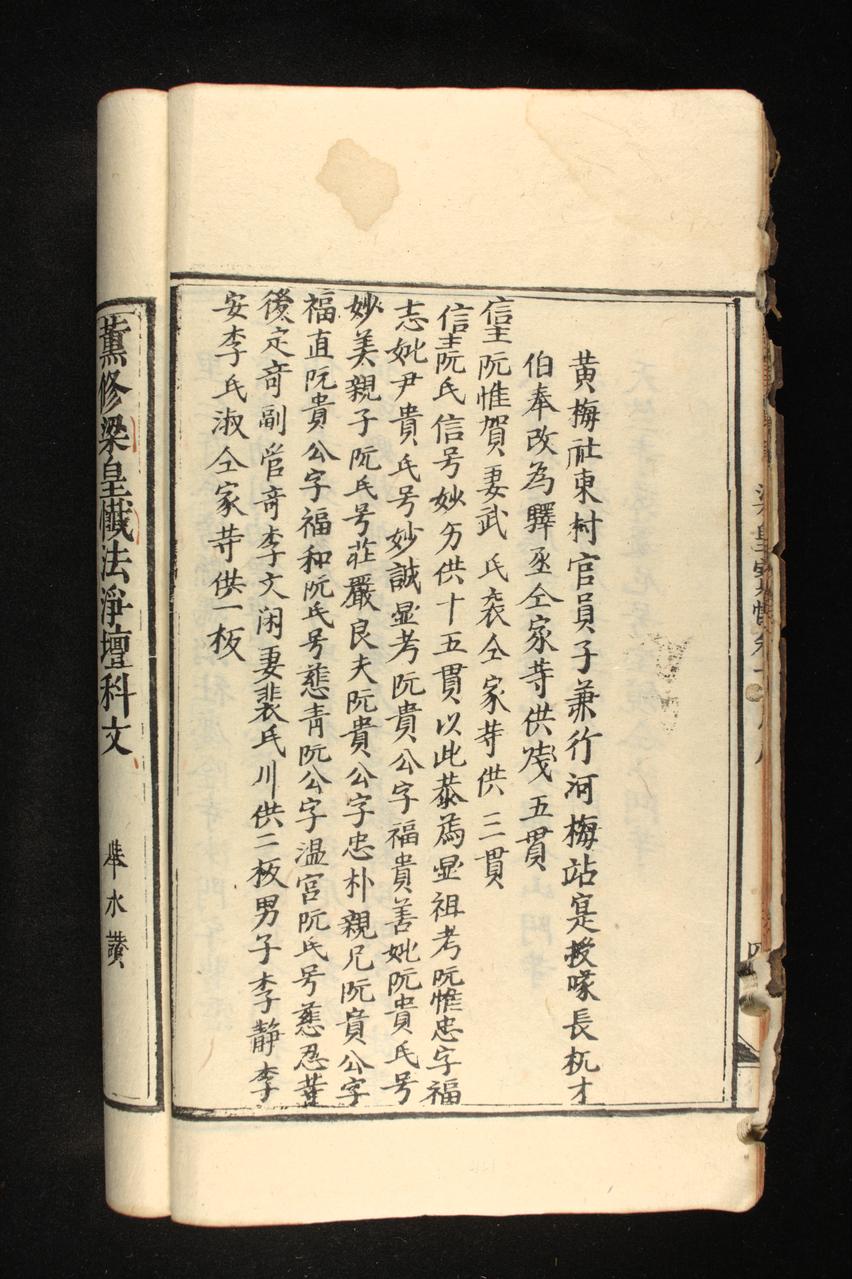 黄梅社東村官員子兼行河梅站寔授隊長杌才
伯奉改為驛丞仝家䓁供戋五貫
信主阮惟賀妻武氏衮仝家䓁供三貫
信主阮氏信号妙方供十五貫以此恭為显祖考阮惟忠字福
志妣尹貴氏号妙誠显考阮貴公字福貴善妣阮貴氏号
妙美親子阮氏号莊嚴良夫阮貴公字忠朴親兄阮貴公字
福直阮貴公字福和阮氏号慈青阮公字温宫阮氏号慈忍䓁
後定奇副管奇李文闲妻裴氏川供二板男子李静李
安李氏淑仝家䓁供一板
薫修梁皇懺法淨壇科文
舉水讚